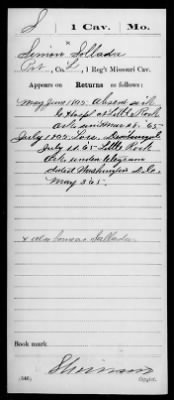 S | 1 Cav. | Mo.
Simon Sollada
Pvt., Co. L, 1 Reg't Missouri Cav.
Appears on
Returns as follows:
May, June 1865, Absent sick
to Hospl at Little Rock
Ark since Mar 25, '65
July 1865, Loss, Discharged
July 12, 65 Little Rock
Ark, under telegram
dated Washington D.C.,
May 3, 65.
Sollada
Book mark:
(546)
Copyist.